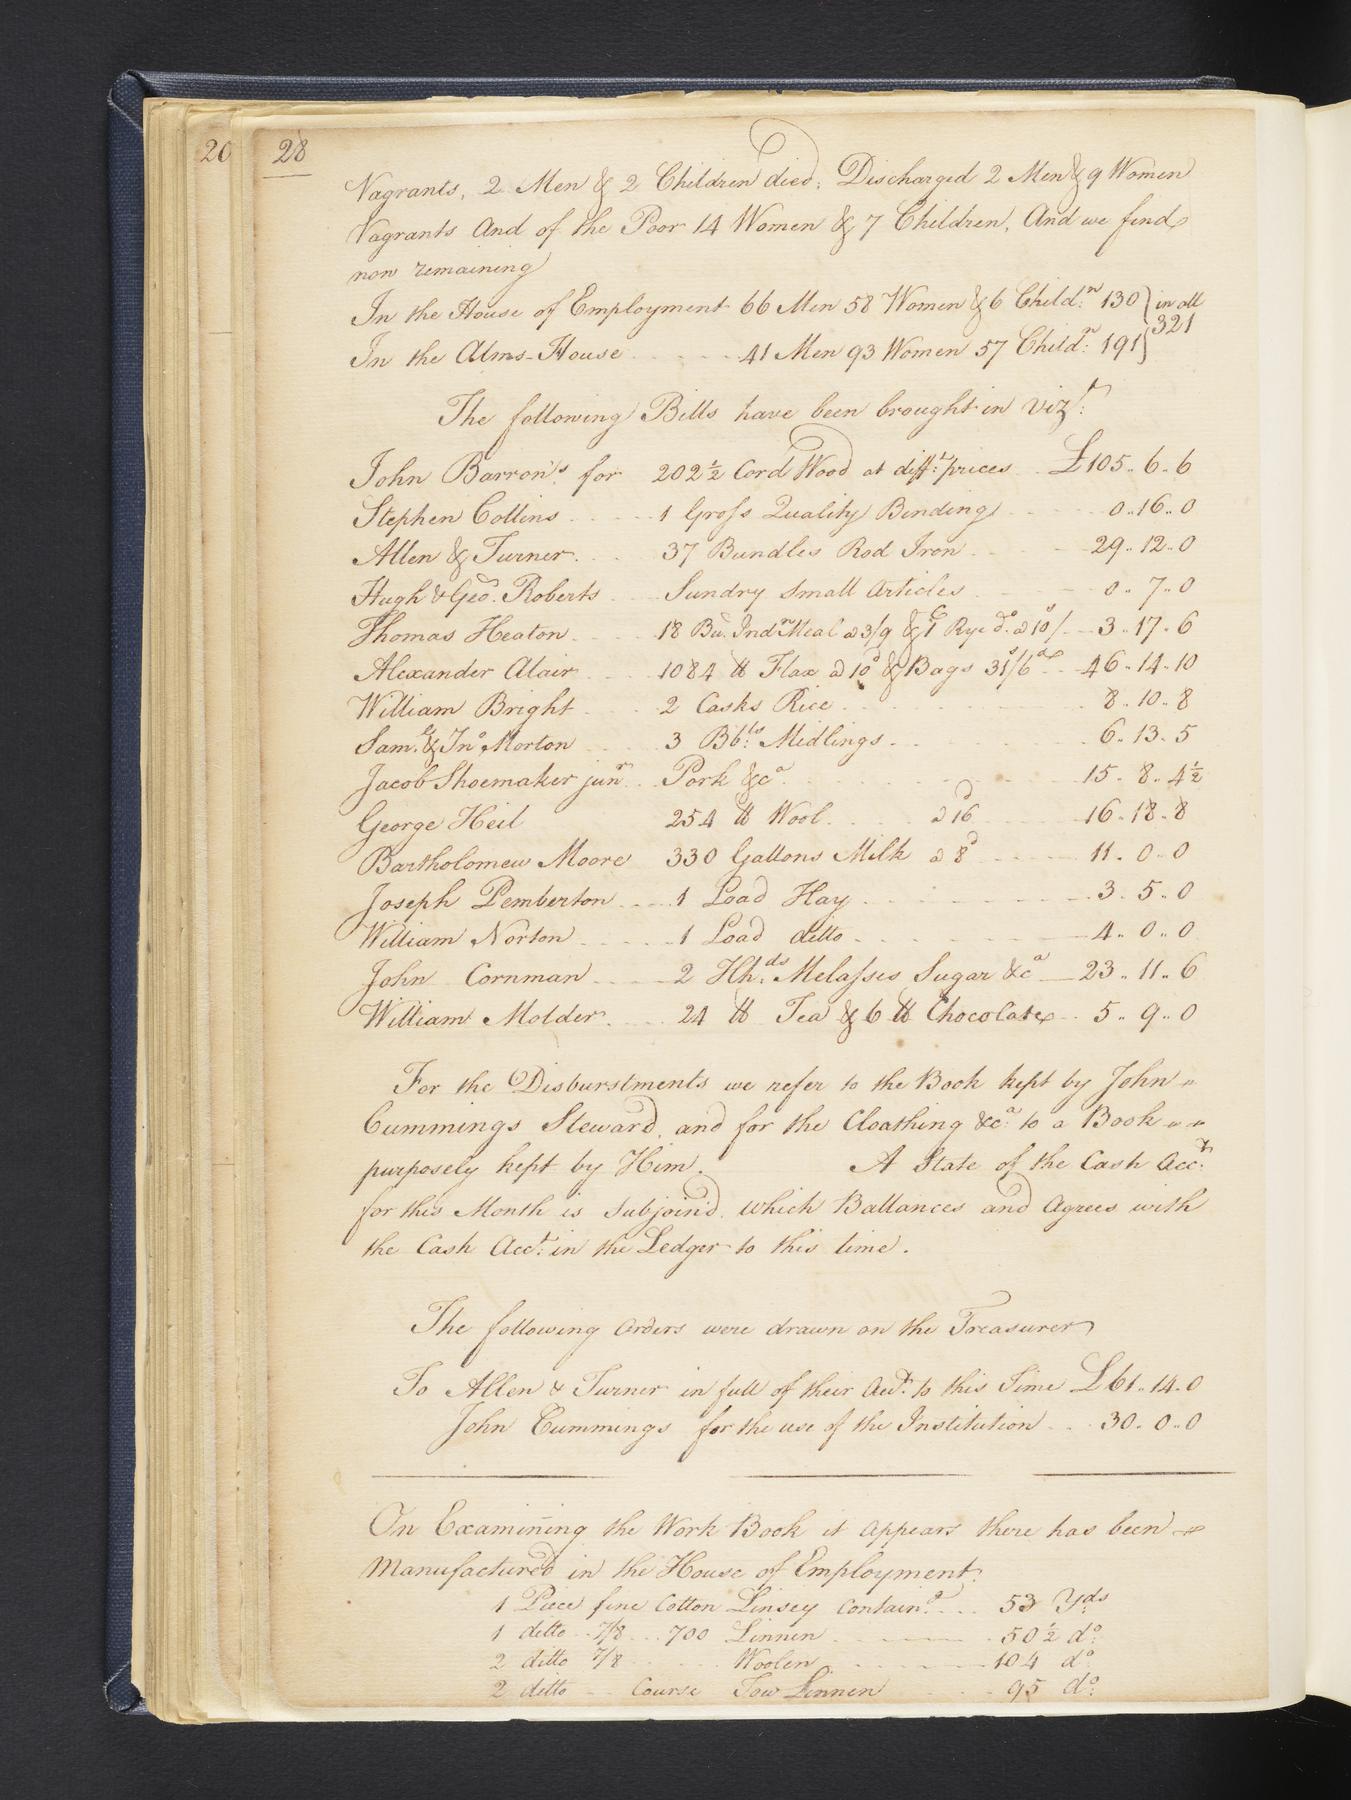 20
28
Vagrants, 2 Men & 2 Children died; Discharged 2 Men & 9 Women
Vagrants and of the Poor 14 Women & 7 Children, And we find
now remaining
In the House of Employment 66 Men 58 Women & 6 Child.n 130 } in all
In the Alms-House 41 Men 93 Women 57 Child.n 191 } 321
The following Bills have been brought in Vizt:
John Barron's for 202½ Cord Wood at diff.t prices £105..6..6
Stephen Collins 1 Gross Quality Binding 0..16..0
Allen & Turner 37 Bundles Rod Iron 29..12..0
Hugh & Geo. Roberts Sundry small Articles 0..7..0
Thomas Heaton 18 Bu. Ind.n Meal a 3/9 & 1 C Rye do. a 10s/ 3..17..6
Alexander Alair 1084 lb Flax a 10d & Bags 31s/6d 46..14..10
William Bright 2 Casks Rice 8..10..8
Sam.l & Jno. Morton 3 Bb:ls Midlings 6..13..5
Jacob Shoemaker junr. Pork &ca 15..8..4½
George Heil 254 lb Wool a 16d 16..18..8
Bartholomew Moore 330 Gallons Milk a 8d 11..0..0
Joseph Pemberton 1 Load Hay 3..5..0
William Norton 1 Load ditto 4..0..0
John Cornman 2 Hh:ds Melasses Sugar &ca 23..11..6
William Molder 24 lb Tea & 6 lb Chocolate 5..9..0
For the Disburstments we refer to the Book kept by John
Cummings Steward, and for the Cloathing &ca. to a Book
purposely kept by Him. A State of the Cash Acct:
for this Month is subjoin'd which Ballances and Agrees with
the Cash Acct: in the Ledger to this time.
The following orders were drawn on the Treasurer
To Allen & Turner in full of their Acct. to this Time £61..14..0
John Cummings for the use of the Institution 30..0..0
On Examining the Work Book it appears there has been
Manufactured in the House of Employment.
1 Piece fine Cotton Linsey Contain.g 53 Yds
1 ditto 7/8 700 Linnen 50½ do:
2 ditto 7/8 Woolen 104 do
2 ditto Course Tow Linnen 95 do: